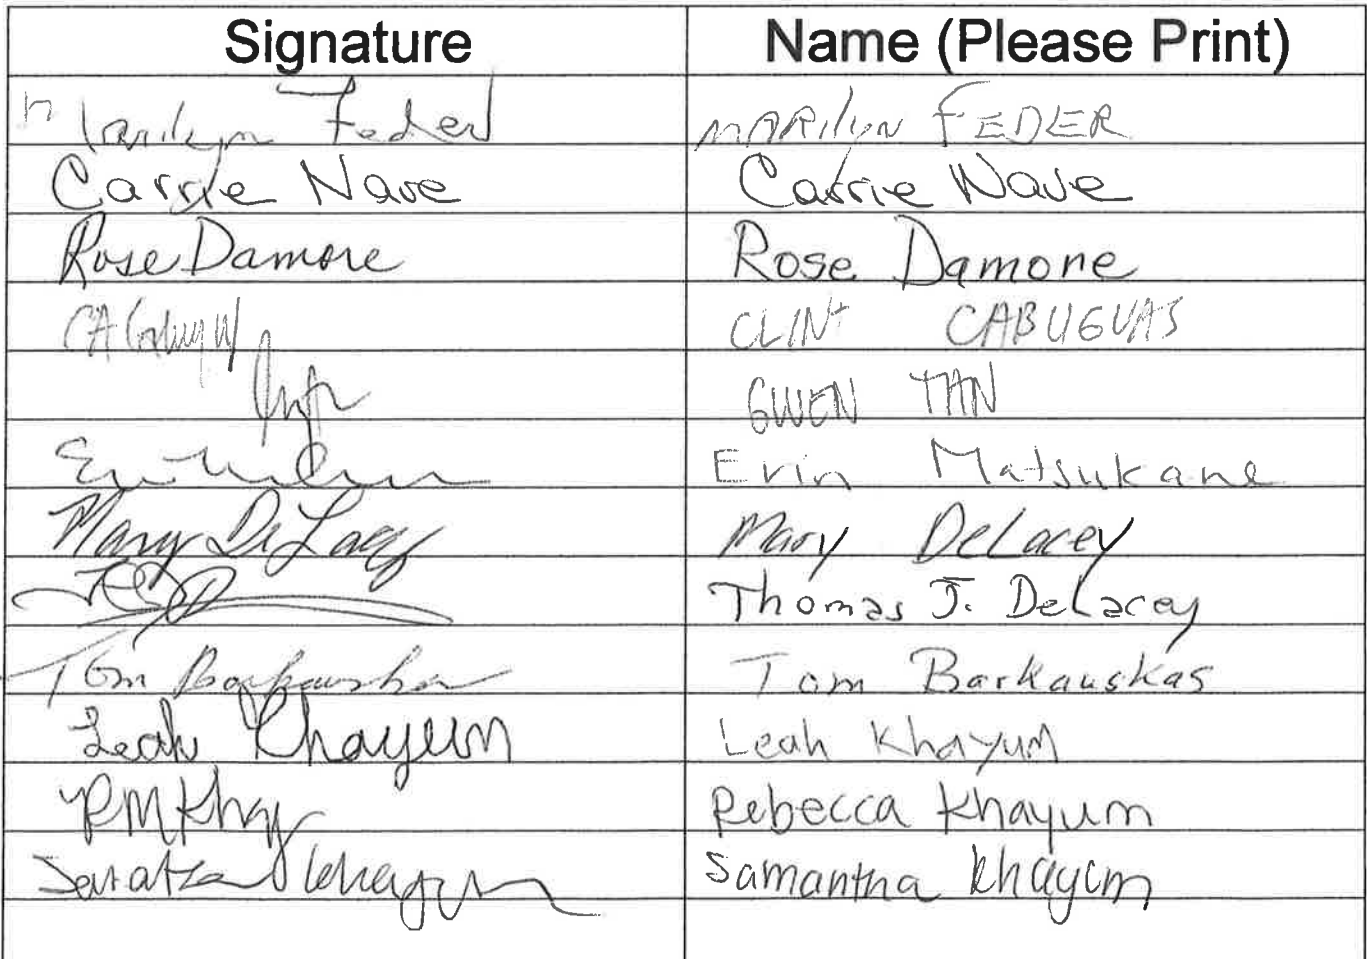 Signature Name (Please Print)
Marilyn Feder MARILYN FEDER
Carrie Nave Carrie Nave
Rose Damore Rose Damone
CLINT CABUGUAS
GWEN TAN
Erin Matsukane
Mary DeLacey Mary DeLacey
Thomas J. DeLacey
Tom Barkauskas Tom Barkauskas
Leah Khayum Leah Khayum
RMKhay Rebecca Khayum
Samantha Khayum